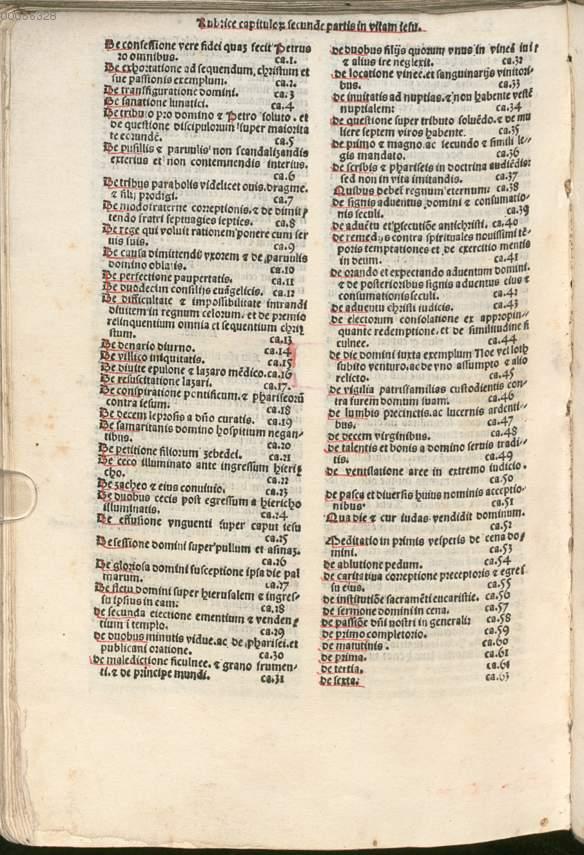 00086328
Rubrice capituloꝝ secunde partis in vitam iesu.
De confessione vere fidei quaʒ fecit Petrus
ro omnibus. ca.1.
De exhortatione ad sequendum christum et
sue passionis exemplum. ca.2.
De transfiguratione domini. ca.3
De sanatione lunatici. ca.4
De tributo pro domino ⁊ Petro soluto. et
de questione discipulorum super maiorita
te ecundē. ca.5
De pusillis ⁊ paruulis non scandalizandis
exterius et non contemnendis interius.
ca.6
De tribus parabolis videlicet ouis.dragme.
⁊ filij prodigi. ca.7
De modo fraterne correptionis.⁊ de dimit
tendo fratri septuagies septies. ca.8
De rege qui voluit rationem ponere cum ser
uis suis. ca.9
De causa dimittendi vxorem ⁊ de paruulis
domino oblatis. ca.10
De perfectione paupertatis. ca.11
De duodecim consilijs euāgelicis. ca.12
De difficultate ⁊ impossibilitate intrandi
diuitem in regnum celorum. et de premio
relinquentium omnia et sequentium chri
stum. ca.13
De denario diurno. ca.14
De villico iniquitatis. ca.15
De diuite epulone ⁊ lazaro mēdico.ca.16
De resuscitatione lazari. ca.17.
De conspiratione pontificum.⁊ phariseorū
contra iesum. ca.18
De decem leprosis a dño curatis. ca.19
De samaritanis domino hospitium negan-
tibus. ca.20
De petitione filiorum zebedei. ca.21
De ceco illuminato ante ingressum hieri
cho. ca.22
De zacheo ⁊ eius conuiuio. ca.23
De duobus cecis post egressum a hiericho
illuminatis. ca.24
De effusione vnguenti super caput iesu
ca.25
De sessione domini super pullum et asinaʒ.
ca.26
De gloriosa domini susceptione ipsa die pal
marum. ca.27
De fletu domini super hierusalem ⁊ ingres-
su ipsius in eam. ca.28
de secunda eiectione ementium ⁊ venden
tium i templo. ca.29
de duobus minutis vidue.ac de pharisei.et
publicani oratione. ca.30
de maledictione ficulnee.⁊ grano frumen-
ti.⁊ de principe mundi. ca.31
de duobus filijs quorum vnus in vineā iuit
⁊ alius ire neglexit. ca.32
de locatione vinee.et sanguinarijs vinitori-
bus. ca.33
de inuitatis ad nuptias.⁊ non habente vestē
nuptialem: ca.34
De questione super tributo soluēdo.⁊ de mu
liere septem viros habente. ca.35
de primo ⁊ magno.ac secundo ⁊ simili le-
gis mandato. ca.36
de scribis ⁊ phariseis in doctrina audiēdis:
sed non in vita imitandis. ca.37
Quibus debeť regnum eternum: ca.38
de signis aduentus domini ⁊ consumatio-
nis seculi. ca.39
de aduētu et psecutiōe antichristi. ca.40
de remedijs contra spirituales nouissimi tē-
poris temptationes et de exercitio mentis
in deum. ca.41
de orando et expectando aduentum domini.
⁊ de posterioribus signis aduentus eius ⁊
consumationis seculi. ca.42
de aduentu christi iudicis. ca.43
de electorum consolatione ex appropin-
quante redemptione.et de similitudine fi
culnee. ca.44
de die domini iuxta exemplum Noe vel loth
subito venturo.ac de vno assumpto ⁊ alio
relicto. ca.45
de vigilia patrisfamilias custodientis con-
tra furem domum suam. ca.46
de lumbis precinctis.ac lucernis ardenti-
bus. ca.47
de decem virginibus. ca.48
de talentis et bonis a domino seruis tradi-
tis. ca.49
de ventilatione aree in extremo iudicio.
ca.50
de pasca et diuersis huius nominis acceptio-
nibus. ca.51
Qua die ⁊ cur iudas vendidit dominum.
ca.52
Meditatio in primis vesperis de cena do
mini. ca.53
de ablutione pedum. ca.54
de caritatiua correptione preceptoris ⁊ egres
su eius. ca.55
de institutiōe sacramēti eucaristie. ca.56
de sermone domini in cena. ca.57
de passiōe dñi nostri in generali: ca.58
de primo completorio. ca.59
de matutinis. ca.60
de prima. ca.61
de tertia. ca.61
de sexta. ca.63